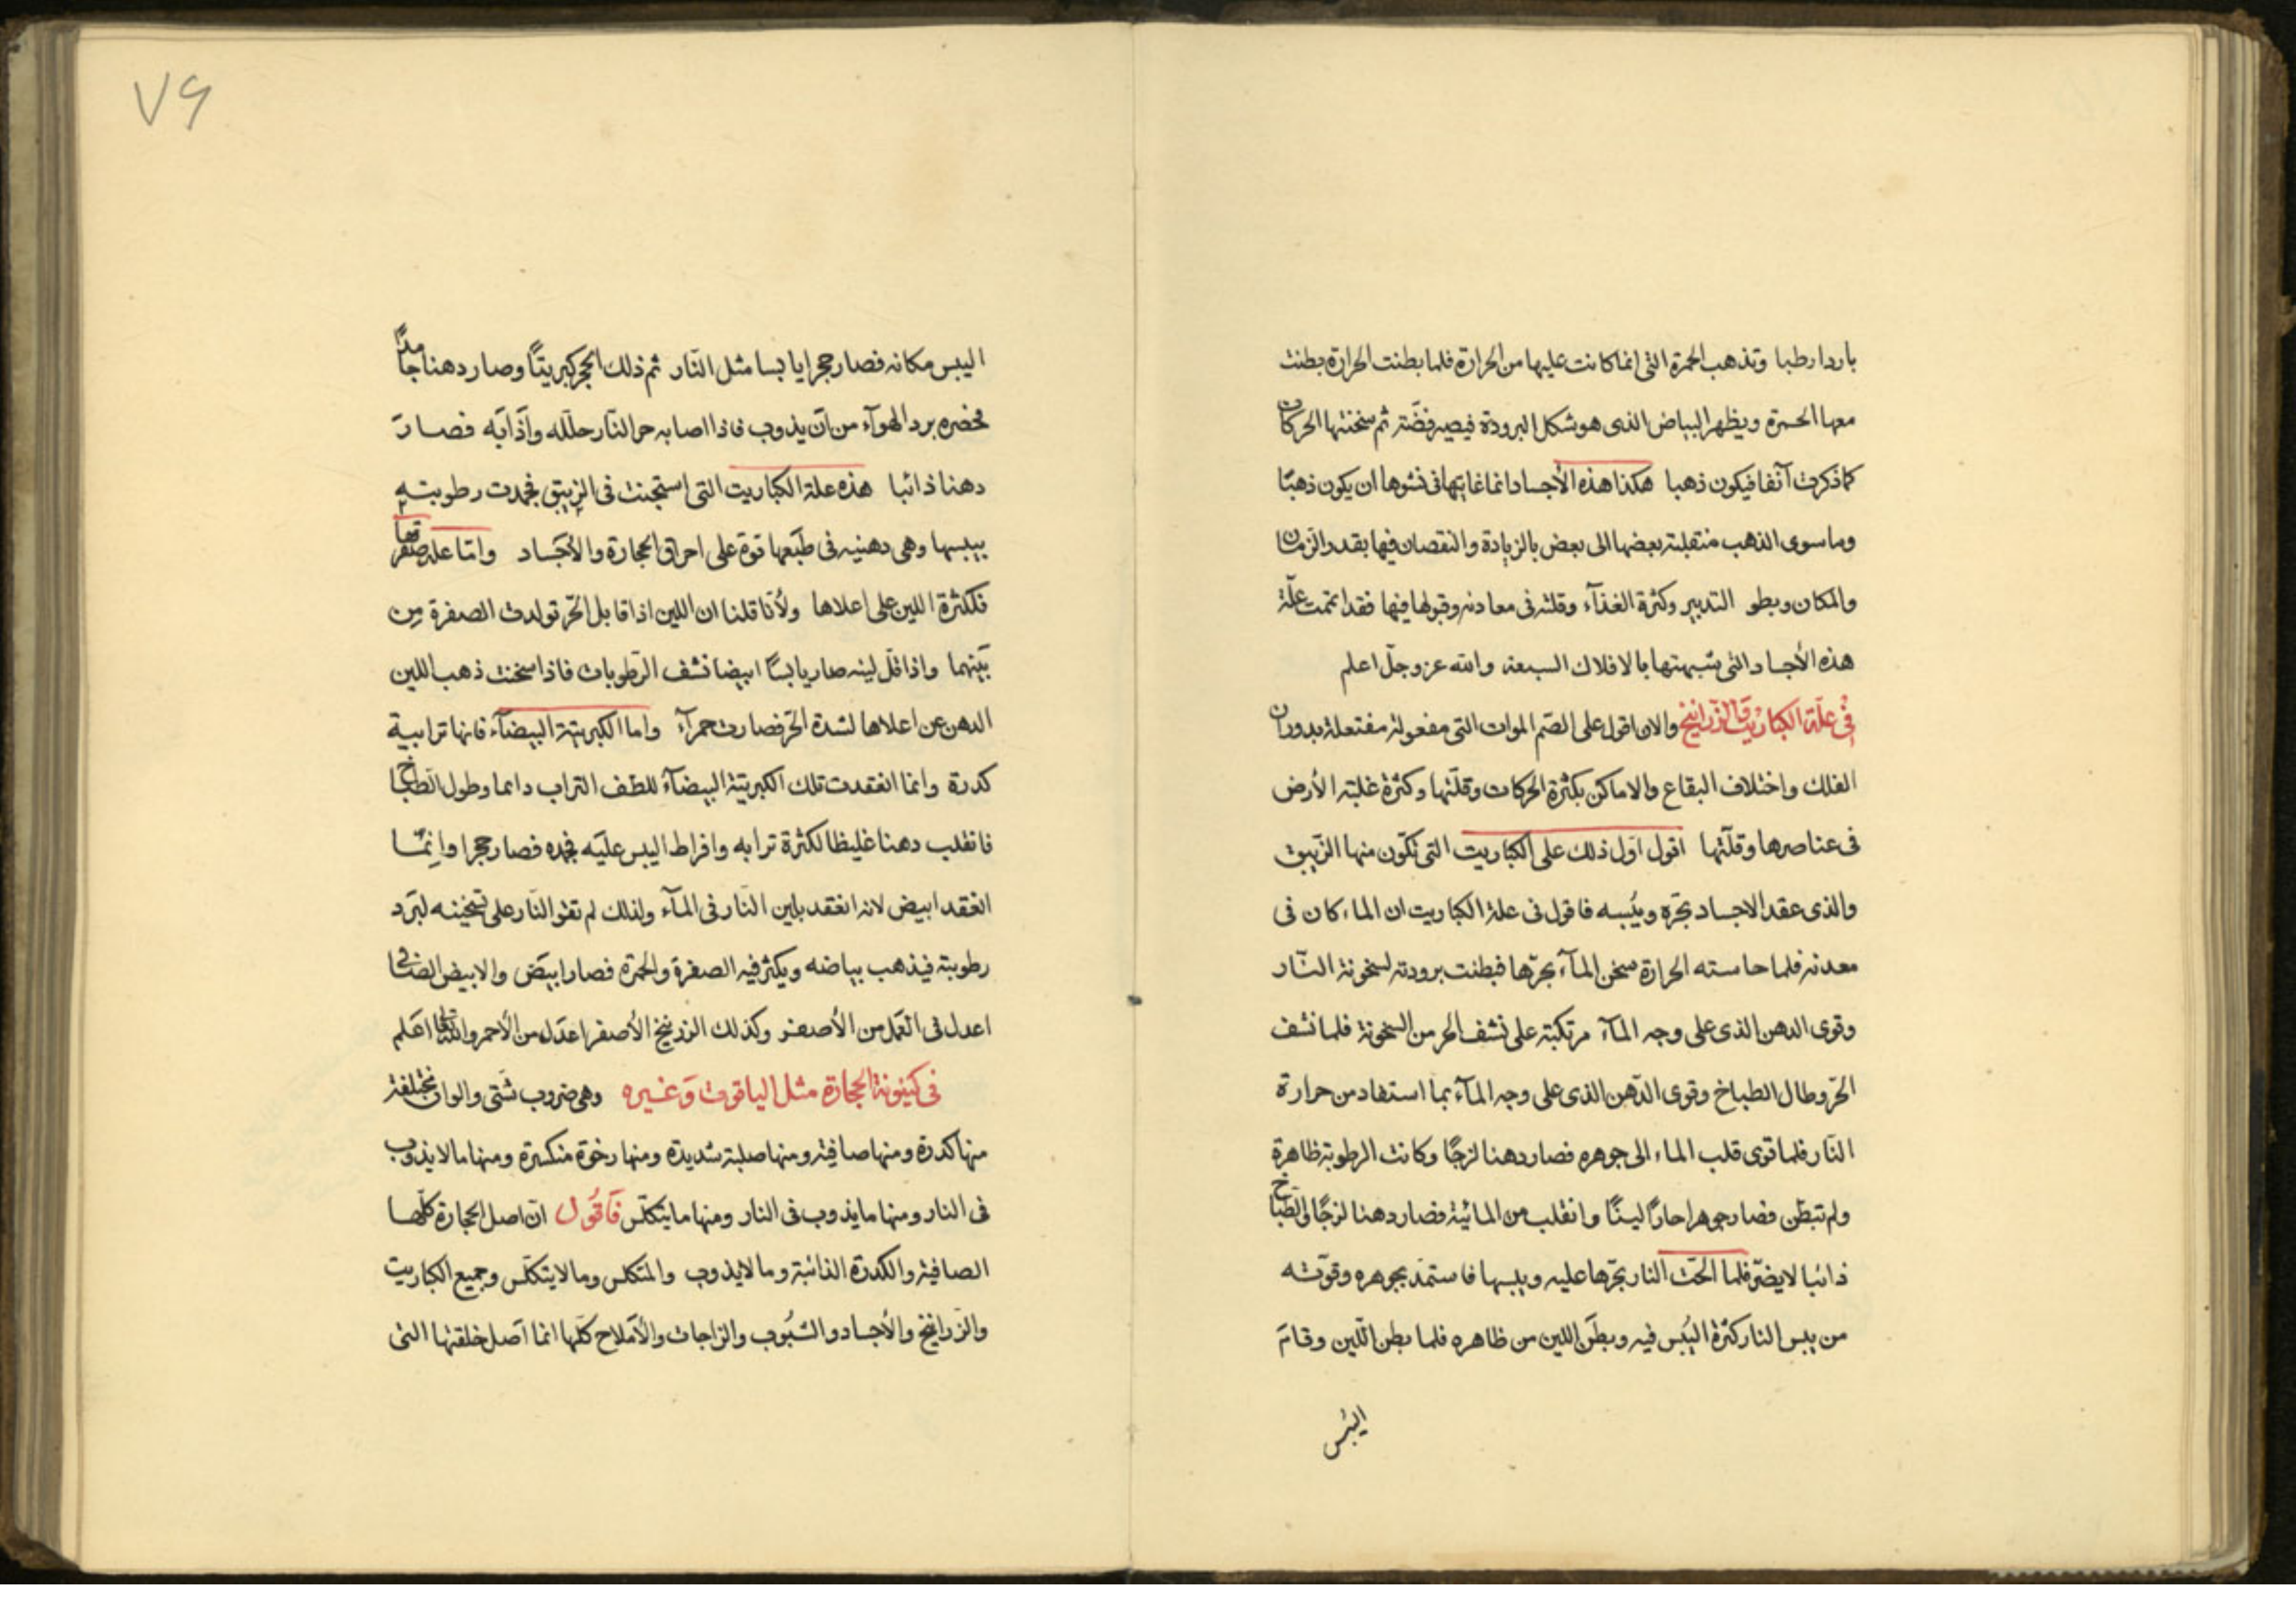 باردا رطبا وتذهب الحمرة التى انما كانت عليها من الحرارة فلما بطنت الحرارة بطنت
معها الحمرة ويظهر البياض الذى هو شكل البرودة فيصير فضّة ثم سخنتها الحركات
كما ذكرت آنفا فيكون ذهبا هكذا هذه الأجساد انما غايتها فى نشوها ان يكون ذهبًا
وما سوى الذهب منتقلة بعضها الى بعض بالزيادة والنقصان فيها بقدر الزمان
والمكان وبطو التدبير وكثرة الغذآء وقلته فى معادنه وقبولها فيها فقد اتممت علّة
هذه الأجساد التى شبهتها بالافلاك السبعة والله عز وجلّ اعلم
فى علّة الكباريت والزرانيخ والان اقول على الصّم الموات التى مفعولة مفتعلة بدوران
الفلك واختلاف البقاع والاماكن بكثرة الحركات وقلّتها وكثرة غلبة الأرض
فى عناصرها وقلّتها اقول اوّل ذلك على الكباريت التى تكّون منها الزّيبق
والذى عقد الاجساد بحَرّه ويُبسه فاقول فى علة الكباريت ان الماء كان فى
معدنه فلما حاسته الحرارة سخن المآء بحرّها فبطنت برودته لسخونة النّار
وقوى الدهن الذى على وجه المآء مرتكبة على نشف الحر من السخونة فلما نشف
الحّر وطال الطباخ وقوى الدّهن الذى على وجه المآء بما استفاد من حرارة
النّار فلما قوى قلب الماء الى جوهره فصار دهنا لزجًا وكانت الرطوبة ظاهرة
ولم تبطن فصار جوهرا حارًا لينًا وانقلب من المائية فصار دهنا لزجًا فى الطباخ
ذائبا لا يضرّ فلما الحّت النار بحرّها عليه ويبسها فاستمدّ بجوهره وقوّته
من يبس النار كثرة اليُبس فيه وبطَن اللين من ظاهره فلما بطن اللّين وقامَ
اليُبس
٧٩
اليبس مكانه فصار حجرا يابسا مثل النّار ثم ذلك الحجر كبريتًا وصار دهنا جامدًا
فحصره برد الهوآء من ان يذوب فاذا اصابه حر النّار حلّله واَذَابَه فصارَ
دهنا ذائبا هذه علة الكباريت التى استجنت فى الزيبق فجمدت رطوبته
بيبسها وهى دهنيه فى طبَعها قوة على احراق الحجارة والأجَساد وامّا علة صفرتها
فلكثرة اللين على اعلاها ولأنّا قلنا ان اللين اذا قابل الحّر تولدت الصفرة مِن
بَينهما واذا قلّ لينه صار يابسًا ابيضا نشف الرّطوبات فاذا سخنت ذهب اللين
الدهن عن اعلاها لشدة الحّر فصارت حمرآء واما الكبريتة البيضآء فانها ترابية
كدرة وانما انعقدت تلك الكبريتية البيضآء للطف التراب دائما وطول الطباخ
فانقلب دهنا غليظا لكثرة ترابه وافراط اليبس عليَه فجمده فصار حجرا وانمّا
انعقد ابيض لانه انعقد بلين النّار فى المآء ولذلك لم تقو النّار على تسخينه لبَرد
رطوبته فيذهب بياضه ويكثر فيه الصفرة والحمرة فصار ابيَض والابيض الصّافى
اعدل فى العَمل من الأصفر وكذلك الزرنيخ الأصفر اعدَل من الأحمر والله تعالى اعَلم
فى كينونة الحجارة مثل الياقوت وَغيره وهى ضروب شَتى والوان مختلفة
منها كدرة ومنها صافية ومنها صلبة شديدة ومنها رخوة منكسرة ومنها مالا يذوب
فى النار ومنها ما يذوب فى النار ومنها ما يتكلّس فَاقُول انّ اصل الحجارة كلّها
الصافية والكدرة الذائبة وما لا يذوب والمتكلس وما لا يتكلّس وجميع الكباريت
والزّرانيخ والأجساد والشُبوب والزاجات والأمَلاح كلّها انما اَصل خلقتها التى